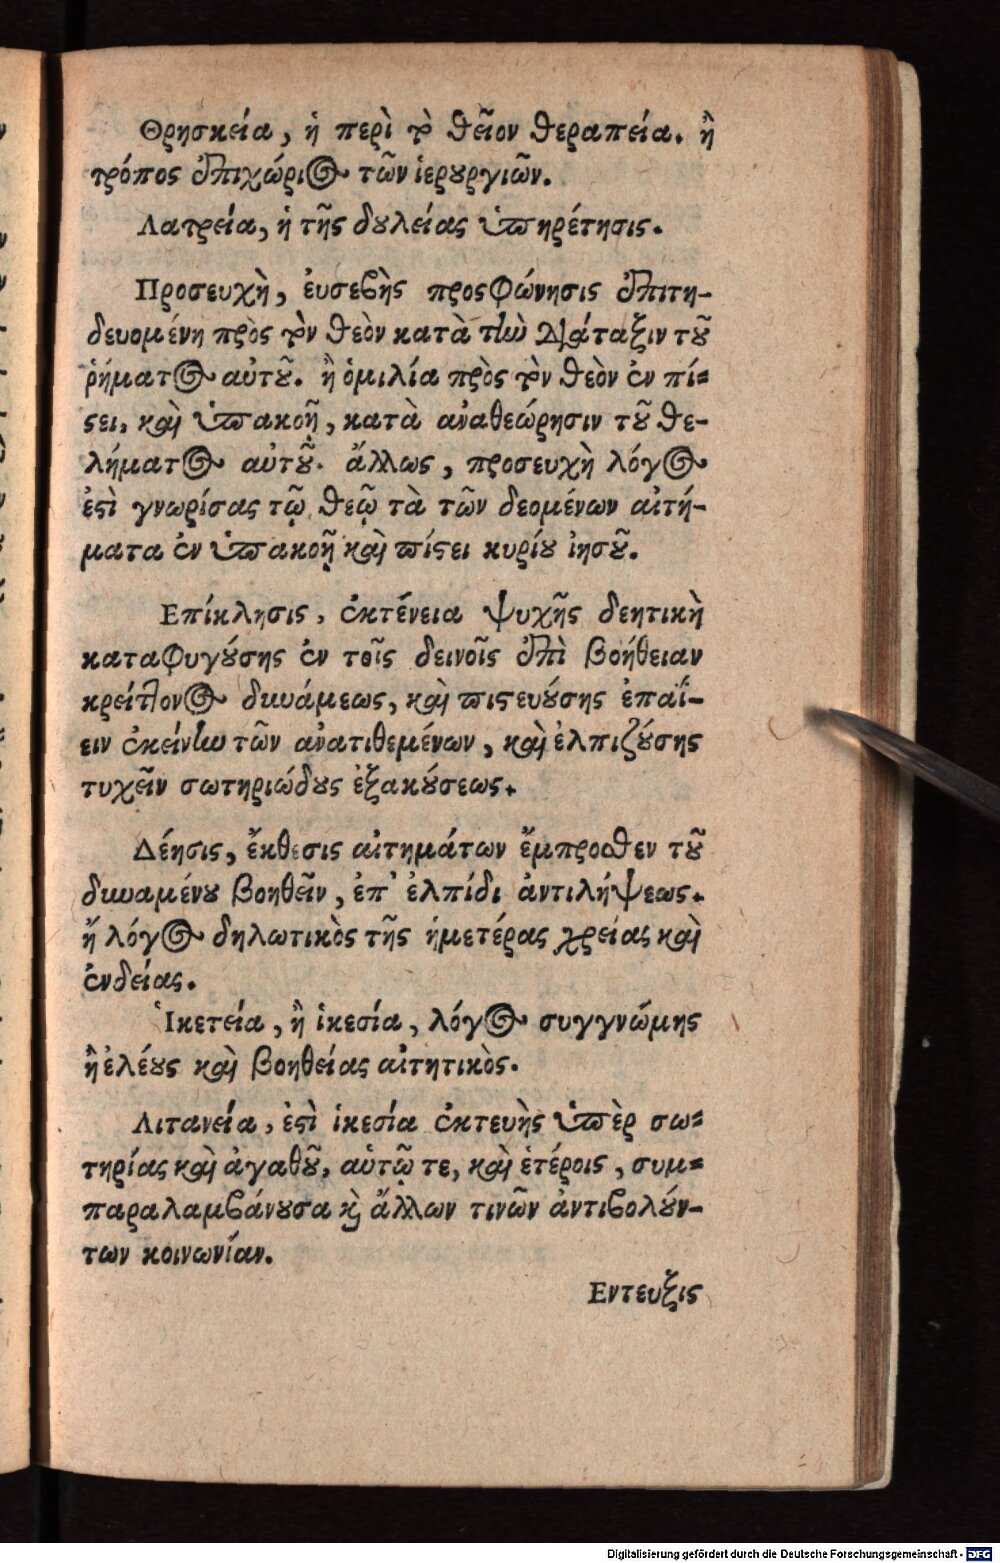 Θρησκεία, ἡ περὶ τὸ θεῖον θεραπεία. ἢ
τρόπος ἐπιχώριος τῶν ἱερουργιῶν.
Λατρεία, ἡ τῆς δουλείας ὑπηρέτησις.
Προσευχὴ, ἐυσεβὴς προσφώνησις ἐπιτη-
δευομένη πρὸς τὸν θεὸν κατὰ τὴν διάταξιν τοῦ
ῥήματος αὐτοῦ. ἢ ὁμιλία πρὸς τὸν θεὸν ἐν πί-
στει, καὶ ὑπακοῇ, κατὰ ἀναθεώρησιν τοῦ θε-
λήματος αὐτοῦ. ἄλλως, προσευχὴ λόγος
ἐστὶ γνωρίσας τῷ θεῷ τὰ τῶν δεομένων αἰτή-
ματα ἐν ὑπακοῇ καὶ πίστει κυρίου ἰησοῦ.
Επίκλησις, ἐκτένεια ψυχῆς δεητικὴ
καταφυγούσης ἐν τοῖς δεινοῖς ἐπὶ βοήθειαν
κρείττονος δυνάμεως, καὶ πιστευούσης ἐπαΐ-
ειν ἐκείνην τῶν ἀνατιθεμένων, καὶ ἐλπιζούσης
τυχεῖν σωτηριώδους ἐξακούσεως.
Δέησις, ἔκθεσις αἰτημάτων ἔμπροσθεν τοῦ
δυναμένου βοηθεῖν, ἐπ' ἐλπίδι ἀντιλήψεως.
ἤ λόγος δηλωτικὸς τῆς ἡμετέρας χρείας καὶ
ἐνδείας.
Ἱκετεία, ἢ ἱκεσία, λόγος συγγνώμης
ἢ ἐλέους καὶ βοηθείας αἰτητικὸς.
Λιτανεία, ἐστὶ ἱκεσία ἐκτενὴς ὑπὲρ σω-
τηρίας καὶ ἀγαθοῦ, αὑτῷ τε, καὶ ἑτέροις, συμ-
παραλαμβάνουσα καὶ ἄλλων τινῶν ἀντιβολούν-
των κοινωνίαν.
Εντευξις
Digitalisierung gefördert durch die Deutsche Forschungsgemeinschaft - DFG